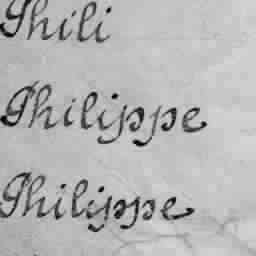 Phili
Philippe
Philippe